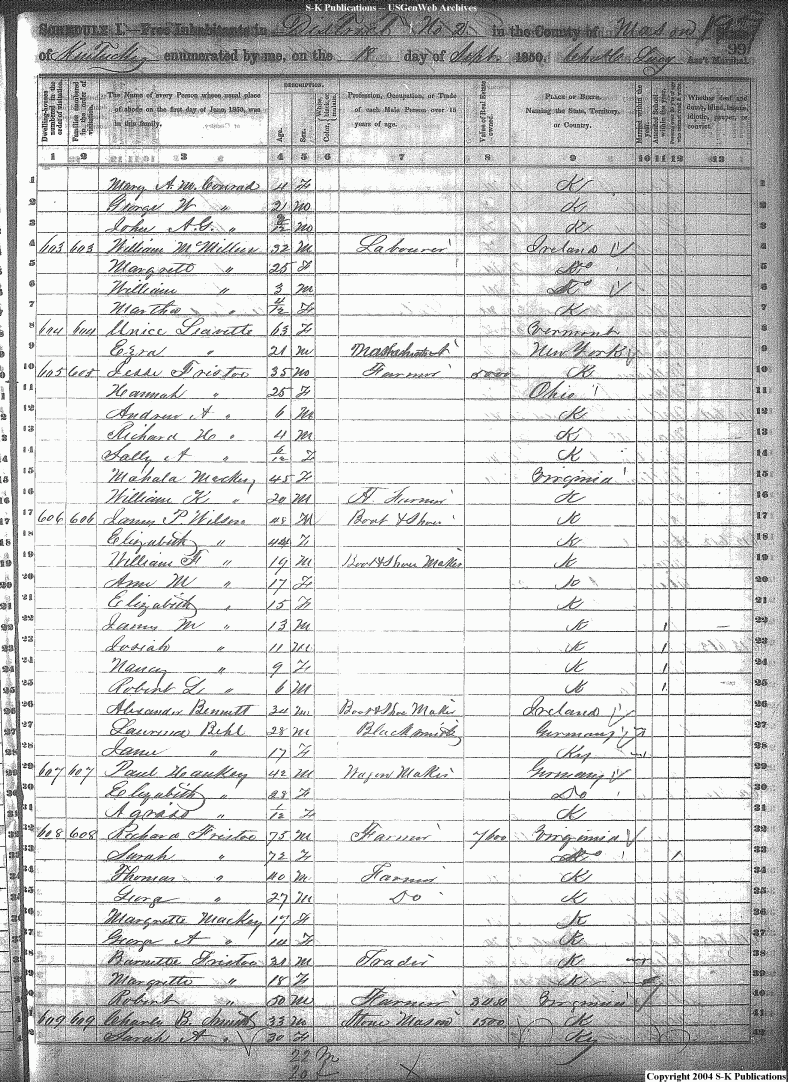 S-K Publications – USGenWeb Archives
SCHEDULE I.—Free Inhabitants in District No 2 in the County of Mason State
99
of Kentucky enumerated by me, on the 18 day of Sept. 1850. Ass't Marshal.
Dwelling-houses numbered in the order of visitation.
Families numbered in the order of visitation.
The Name of every Person whose usual place of abode on the first day of June, 1850, was in this family.
DESCRIPTION.
Age.
Sex.
Color, White, black, or mulatto.
Profession, Occupation, or Trade of each Male Person over 15 years of age.
Value of Real Estate owned.
PLACE OF BIRTH. Naming the State, Territory, or Country.
Married within the year.
Attended School within the year.
Whether deaf and dumb, blind, insane, idiotic, pauper, or convict.
1 2 3 4 5 6 7 8 9 10 11 12 13
1 Mary A. M. Conrad 4 F K 1
2 George W " 2 M K 2
3 John A. G. " /12 M K 3
4 603 603 William McMillen 32 M Labourer Ireland 4
5 Margrett " 25 F Do 5
6 William " 3 M Do 6
7 Martha " 4/12 F K 7
8 604 604 Unice Leavette 63 F Vermont 8
9 Ezra " 21 M New York 9
10 605 605 Jesse Fristoe 35 M Farmer K 10
11 Hannah " 25 F Ohio 11
12 Andrew A " 6 M K 12
13 Richard H " 4 M K 13
14 Sally A " 6/12 F K 14
15 Mahala Mackey 45 F Virginia 15
16 William K " 20 M A Farmer K 16
17 606 606 James P. Wilson 48 M Boot & Shoe K 17
18 Elizabeth " 44 F K 18
19 William F " 19 M Boot & Shoe Maker K 19
20 Ann M " 17 F K 20
21 Elizabeth " 15 F K 21
22 James M " 13 M K 1 22
23 Josiah " 11 M K 1 23
24 Nancy " 9 F K 1 24
25 Robert L " 6 M K 1 25
26 Alexander Bennett 34 M Boot & Shoe Maker Ireland 26
27 Laurena Behl 28 M Blacksmith Germany 27
28 Jane " 17 F Ky 28
29 607 607 Paul Hankey 42 M Wagon Maker Germany 29
30 Elizabeth " 28 F Do 30
31 " 1/12 F K 31
32 608 608 Richard Fristoe 75 M Farmer 7600 Virginia 32
33 Sarah " 72 F Do 1 33
34 Thomas " 40 M Farmer K 34
35 George " 27 M Do K 35
36 Margrette Mackey 17 F K 36
37 George A " 14 F K 37
38 Burnette Fristoe 21 M Trader K 38
39 Margrette " 18 F K 39
40 Robert " 50 M Farmer Virginia 40
41 609 609 Charles B. Smith 33 M Stone Mason 1500 K 41
42 Sarah A " 30 F Ky 42
22 M
20 F
Copyright 2004 S-K Publications